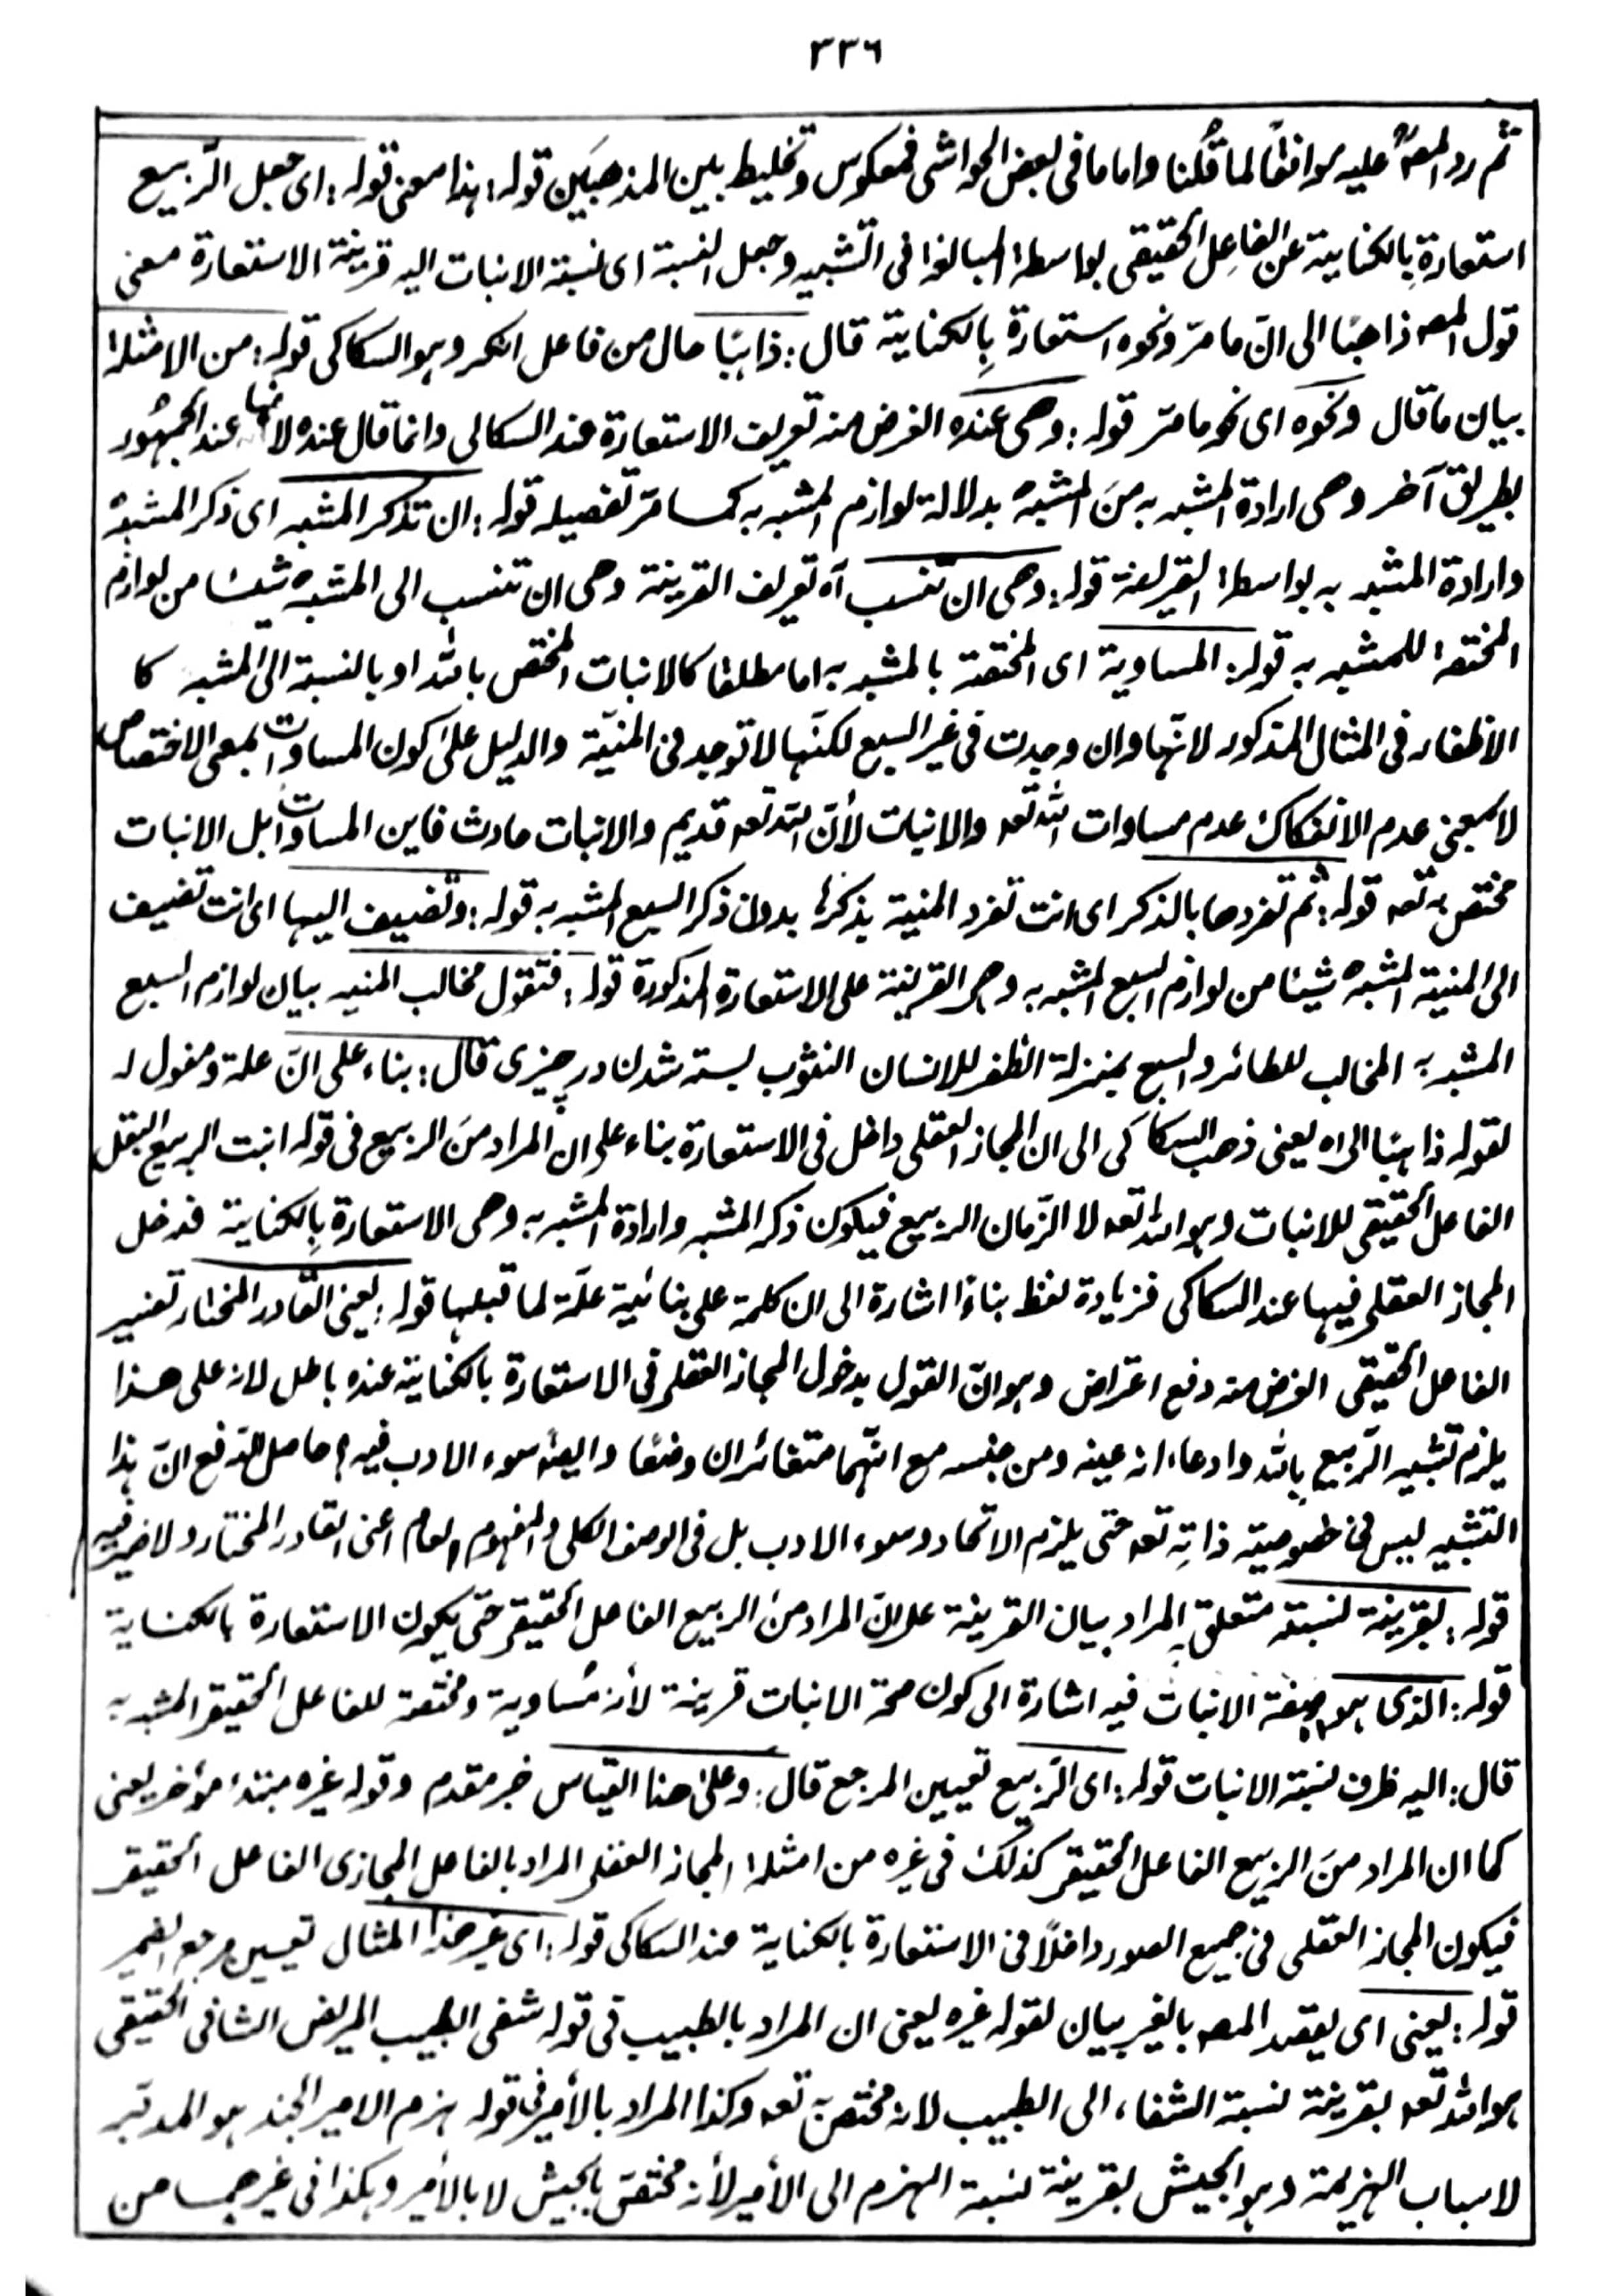 ٣٣٦
ثم رد المصؒ عليه موافقًا لما قُلنا واما ما فى بعض الحواشى فمعكوس وتخليط بين المذهبَين قوله: هذا معنى قوله: اى جعل الرّبيع
استعارةِ بِالكناية عن الفاعِل الحقيقى بواسطة المبالغة فى التشبيه وجعل النسبة اى نسبة الانبات اليه قرينة الاستعارة معنى
قول المصه ذاهبًا الى انّ ما مرّ ونحوه استعارة بِالكناية قال: ذاهبًا حال من فاعل انكر وهو السكاكى قوله: من الامثلة
بيان ما قال ونحوه اى نحو ما مرّ قوله: وهى عنده الغرض منه تعريف الاستعارة عند السكاكى وانما قال عنده لانها عند الجمهُور
بطريق آخر وهى ارادة المشبه به منَ المشبه بدلالة لوازم المشبه به كما مرّ تفصيله قوله: ان تذكر المشبه اى ذكر المشبه
وارادة المشبه به بواسطة القرينة قوله: وهى ان تنسب آه تعريف القرينة وهى ان تنسب الى المشبه شيئا من لوازم
المختصة للمشبه به قوله: المساوية اى المختصة بالمشبه به اما مطلقا كالانبات المختص بالله او بالنسبة الى المشبه كا
الاظفار فى المثال المذكور لانّها وان وجدت فى غير السبع لكنّها لا توجد فى المنيّة والدليل على كون المساوات بمعى الاختصاص
لا بمعنى عدم الانفكاك عدم مساوات الله تعه والانبات لأنّ الله تعه قديم والانبات حادث فاين المساوات بل الانبات
مختص به تعه قوله: ثم تفردها بالذكر اى انت تفرد المنية بذكرها بدون ذكر السبع المشبه به قوله: وتضيف اليها اى انت تضيف
الى المنية المشبه شيئا من لوازم السبع المشبه به وهى القرينة على الاستعارة المذكورة قوله: فتقول مخالب المنيه بيان لوازم السبع
المشبه به المخالب للطائر والسبع بمنزلة الظفر للانسان النشوب بسته شدن در چيزى قال: بناء على انّ علة ومفعول له
لقوله ذاهبًا الى اه يعنى ذهب السكاكى الى ان المجاز العقلى داخل فى الاستعارة بناء على ان المراد منَ الربيع فى قوله انبت الربيع البقل
الفاعل الحقيقى للانبات وهو الله تعه لا الزّمان الربيع فيكون ذكر المشبه وارادة المشبه به وهى الاستعارة بِالكناية فدخل
المجاز العقلى فيها عند السكاكى فزيادة لفظ بناءً اشارة الى ان كلمة على بنائية علّة لما قبلها قوله: يعنى القادر المختار تفسير
الفاعل الحقيقى الغرض منه دفع اعتراض وهو انّ القول بدخول المجاز العقلى فى الاستعارة بالكناية عنده باطل لانه على هذا
يلزم تشبيه الرّبيع بالله وادعاء انه عينه ومن جنسه مع انّهما متغائران وضعًا وايضًا سوء الادب فيه حاصل الدّفع انّ هذا
التشبيه ليس فى خصوصيّة ذاتِه تعه حتى يلزم الاتحاد وسوء الادب بل فى الوصف الكلى والمفهوم العام اعنى القادر المختار ولا ضير فيه
قوله: بقرينة نسبته متعلق بالمراد بيان القرينة على انّ المراد منَ الربيع الفاعل الحقيقى حتى يكون الاستعارة بالكناية
قوله: الذى هو صفة الانبات فيه اشارة الى كون صحة الانبات قرينة لأنه مُساوية ومختصة للفاعل الحقيقى المشبه به
قال: اليه ظرف نسبة الانبات قوله: اى الرّبيع تعيين المرجع قال: وعلى هذا القياس خبر مقدم وقوله غيره مبتدء مؤخر يعنى
كما ان المراد منَ الربيع الفاعل الحقيقى كذلك فى غيره من امثلة المجاز العقلى المراد بالفاعل المجازى الفاعل الحقيقى
فيكون المجاز العقلى فى جميع الصور داخلًا فى الاستعارة بالكناية عند السكاكى قوله: اى غير هذا المثال تعيين مرجع الضمير
قوله: يعنى اى يقصد المصه بالغير بيان لقوله غيره يعنى ان المراد بالطبيب فى قوله شفى الطبيب المريض الشافى الحقيقى
هو الله تعه بقرينة نسبة الشفاء الى الطبيب لانه مختص به تعه وكذا المراد بالأمير فى قوله هزم الامير الجند هو المدبّر
لاسباب الهزيمة وهو الجيش بقرينة نسبة الهزم الى الأمير لأنه مختصّ بالجيش لا بالأمير وهكذا فى غيرهما من